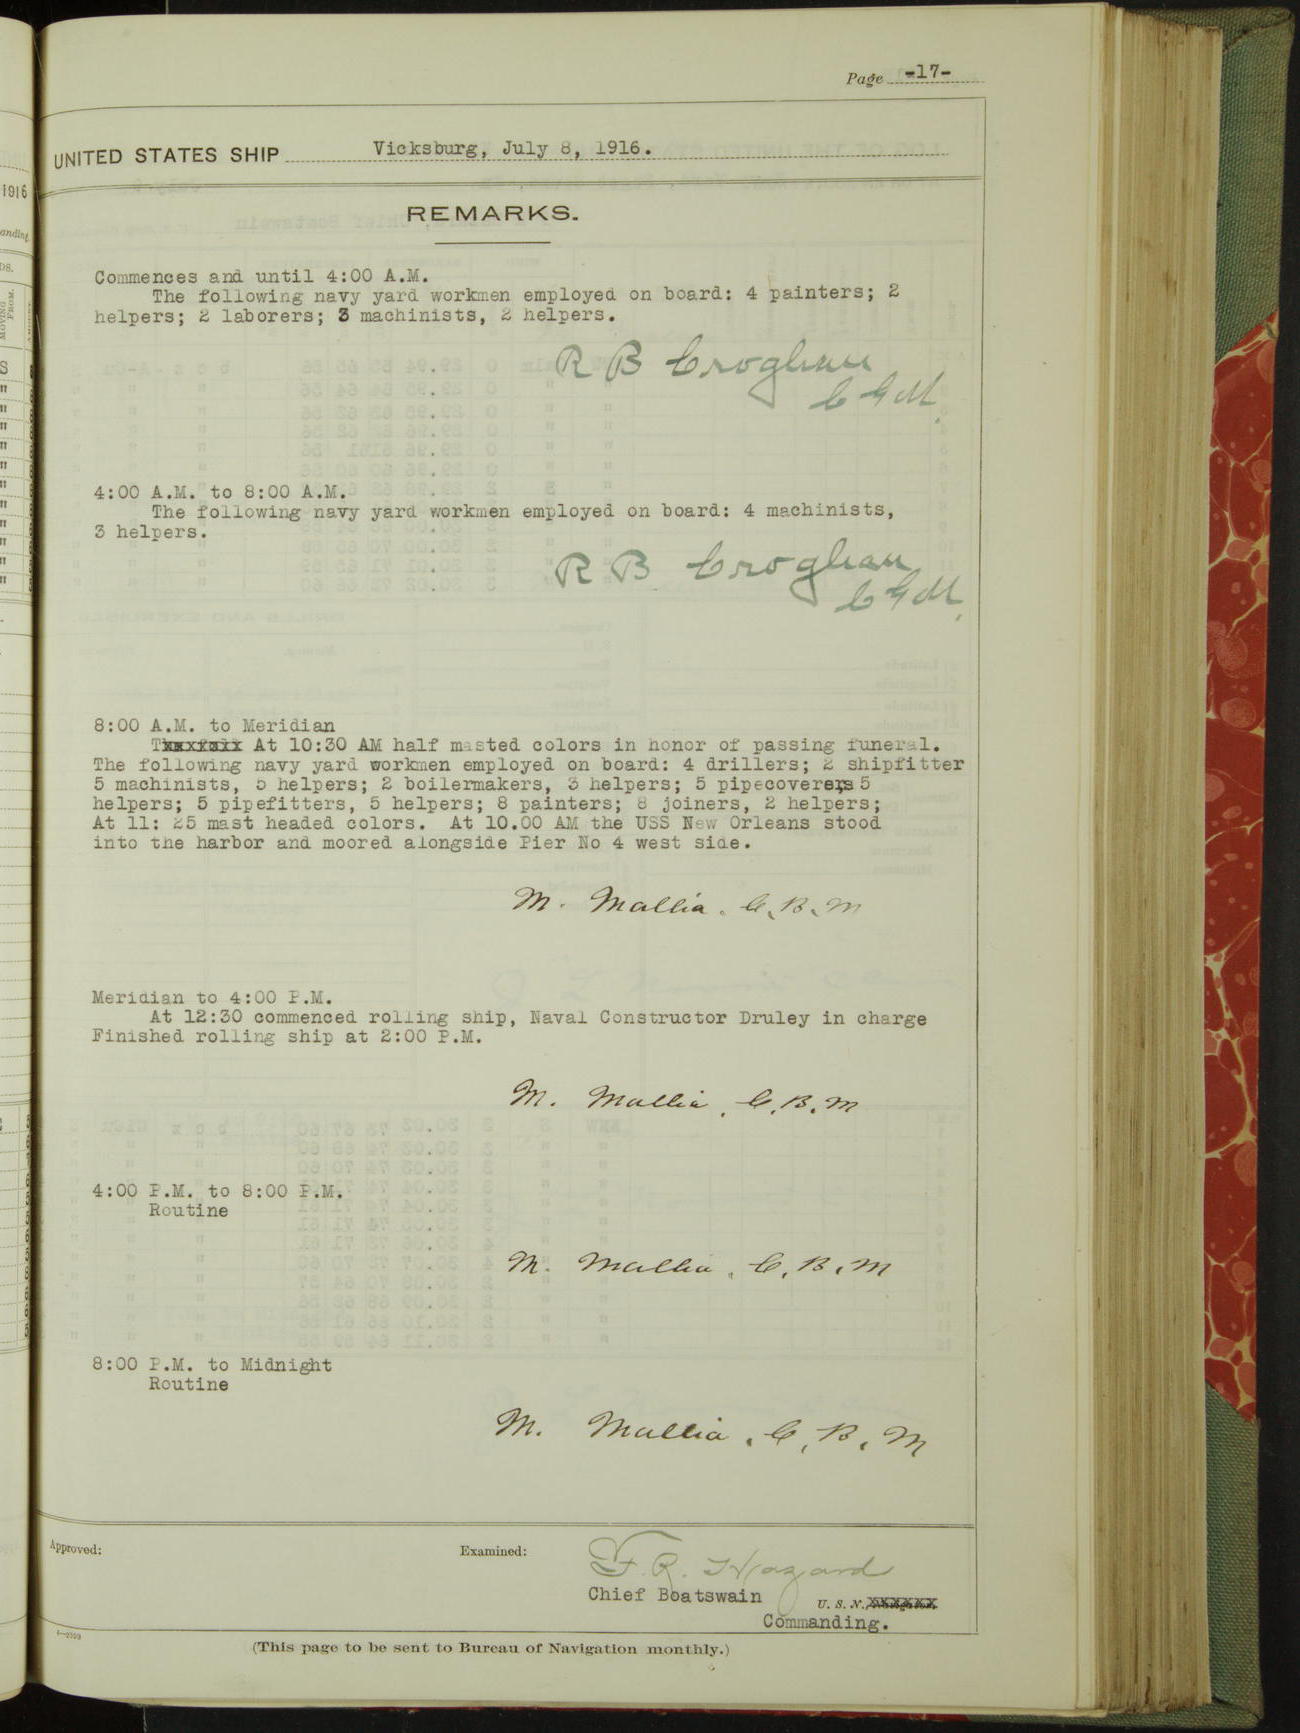 Page -17-
UNITED STATES SHIP Vicksburg, July 8, 1916.
REMARKS.
Commences and until 4:00 A.M.
The following navy yard workmen employed on board: 4 painters; 2
helpers; 2 laborers; 3 machinists, 2 helpers.
R B Croghan
C G M.
4:00 A.M. to 8:00 A.M.
The following navy yard workmen employed on board: 4 machinists,
3 helpers.
R B Croghan
C G M.
8:00 A.M. to Meridian
At 10:30 AM half masted colors in honor of passing funeral.
The following navy yard workmen employed on board: 4 drillers; 2 shipfitter
5 machinists, 5 helpers; 2 boilermakers, 3 helpers; 5 pipecoverers 5
helpers; 5 pipefitters, 5 helpers; 8 painters; 8 joiners, 2 helpers;
At 11: 25 mast headed colors. At 10.00 AM the USS New Orleans stood
into the harbor and moored alongside Pier No 4 west side.
M. Mallia. C. B. M
Meridian to 4:00 P.M.
At 12:30 commenced rolling ship, Naval Constructor Druley in charge
Finished rolling ship at 2:00 P.M.
M. Mallia. C. B. M
4:00 P.M. to 8:00 P.M.
Routine
M. Mallia. C. B. M
8:00 P.M. to Midnight
Routine
M. Mallia. C. B. M
Approved:
Examined:
F. R. Hazard
Chief Boatswain U. S. N.,
Commanding.
(This page to be sent to Bureau of Navigation monthly.)